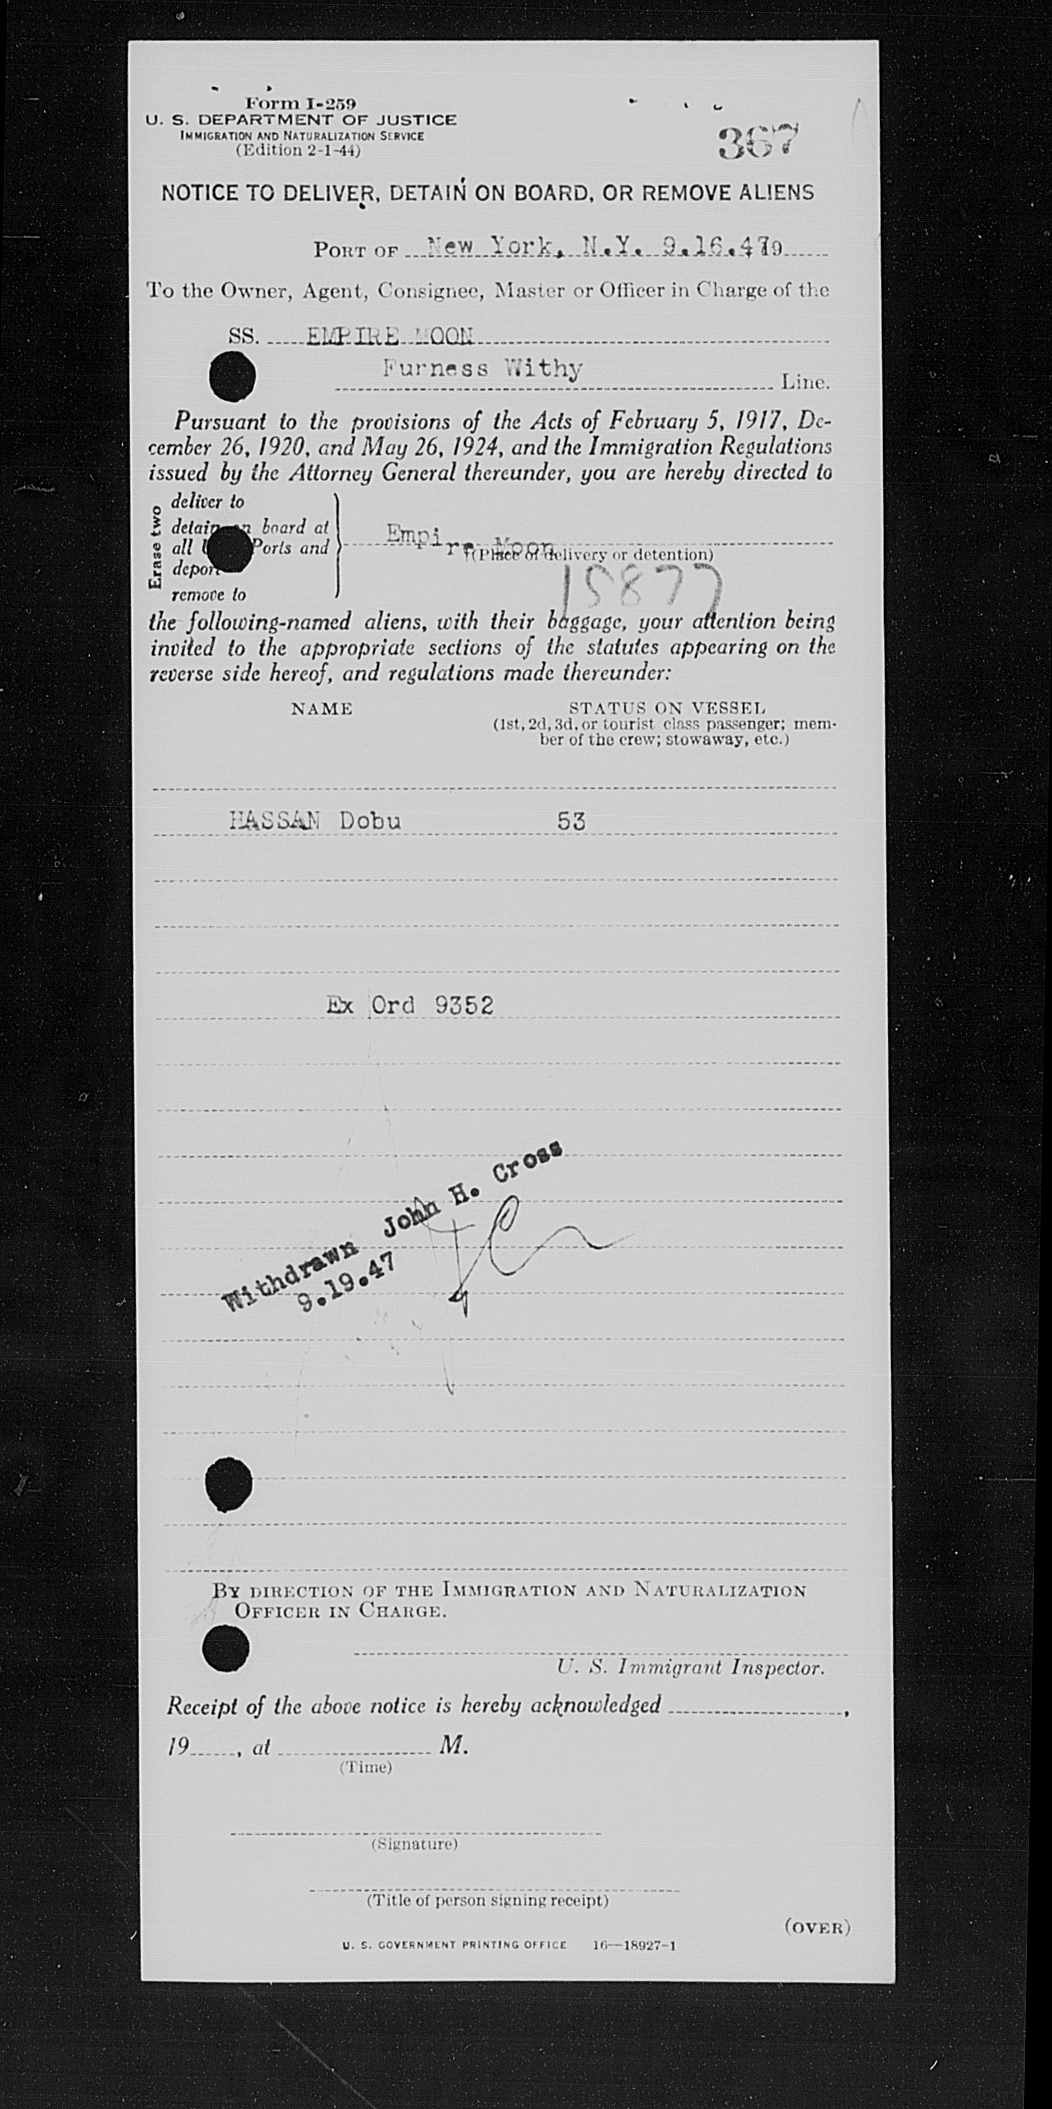 Form I-259
U. S. DEPARTMENT OF JUSTICE
IMMIGRATION AND NATURALIZATION SERVICE
(Edition 2-1-44)
367
NOTICE TO DELIVER, DETAIN ON BOARD, OR REMOVE ALIENS
PORT OF New York, N.Y. 9.16.47 19
To the Owner, Agent, Consignee, Master or Officer in Charge of the
SS. EMPIRE MOON
Furness Withy Line.
Pursuant to the provisions of the Acts of February 5, 1917, De-
cember 26, 1920, and May 26, 1924, and the Immigration Regulations
issued by the Attorney General thereunder, you are hereby directed to
Erase two
deliver to
detain on board at
all Ports and
deport
remove to
Empire Moon
(Place of delivery or detention)
15877
the following-named aliens, with their baggage, your attention being
invited to the appropriate sections of the statutes appearing on the
reverse side hereof, and regulations made thereunder:
NAME STATUS ON VESSEL
(1st, 2d, 3d, or tourist class passenger; mem-
ber of the crew; stowaway, etc.)
HASSAN Dobu 53
Ex Ord 9352
Withdrawn John H. Cross
9.19.47
BY DIRECTION OF THE IMMIGRATION AND NATURALIZATION
OFFICER IN CHARGE.
U. S. Immigrant Inspector.
Receipt of the above notice is hereby acknowledged ,
19 , at M.
(Time)
(Signature)
(Title of person signing receipt)
(OVER)
U. S. GOVERNMENT PRINTING OFFICE 16—18927-1